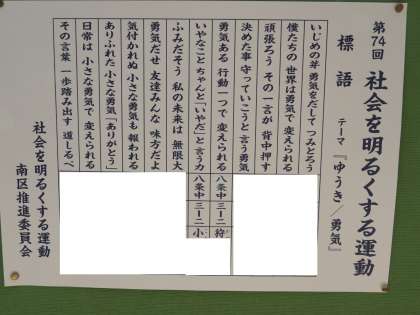 第74回 社会を明るくする運動
標語 テーマ『ゆうき/勇気』
いじめの芽 勇気をだして つみとろう
僕たちの 世界は勇気で 変えられる
頑張ろう その一言が 背中押す
決めた事 守っていこうと言う勇気
勇気ある 行動一つで 変えられる 八条中 三ー二 狩
いやなこと ちゃんと「いやだ」と 言う力 八条中 三ー二 小
ふみだそう 私の未来は 無限大
勇気だせ 友達みんな 味方だよ
気付かれぬ 小さな勇気も 報われる
ありふれた 小さな勇気 「ありがとう」
日常は 小さな勇気で 変えられる
その言葉 一歩踏み出す 道しるべ
社会を明るくする運動
南区推進委員会